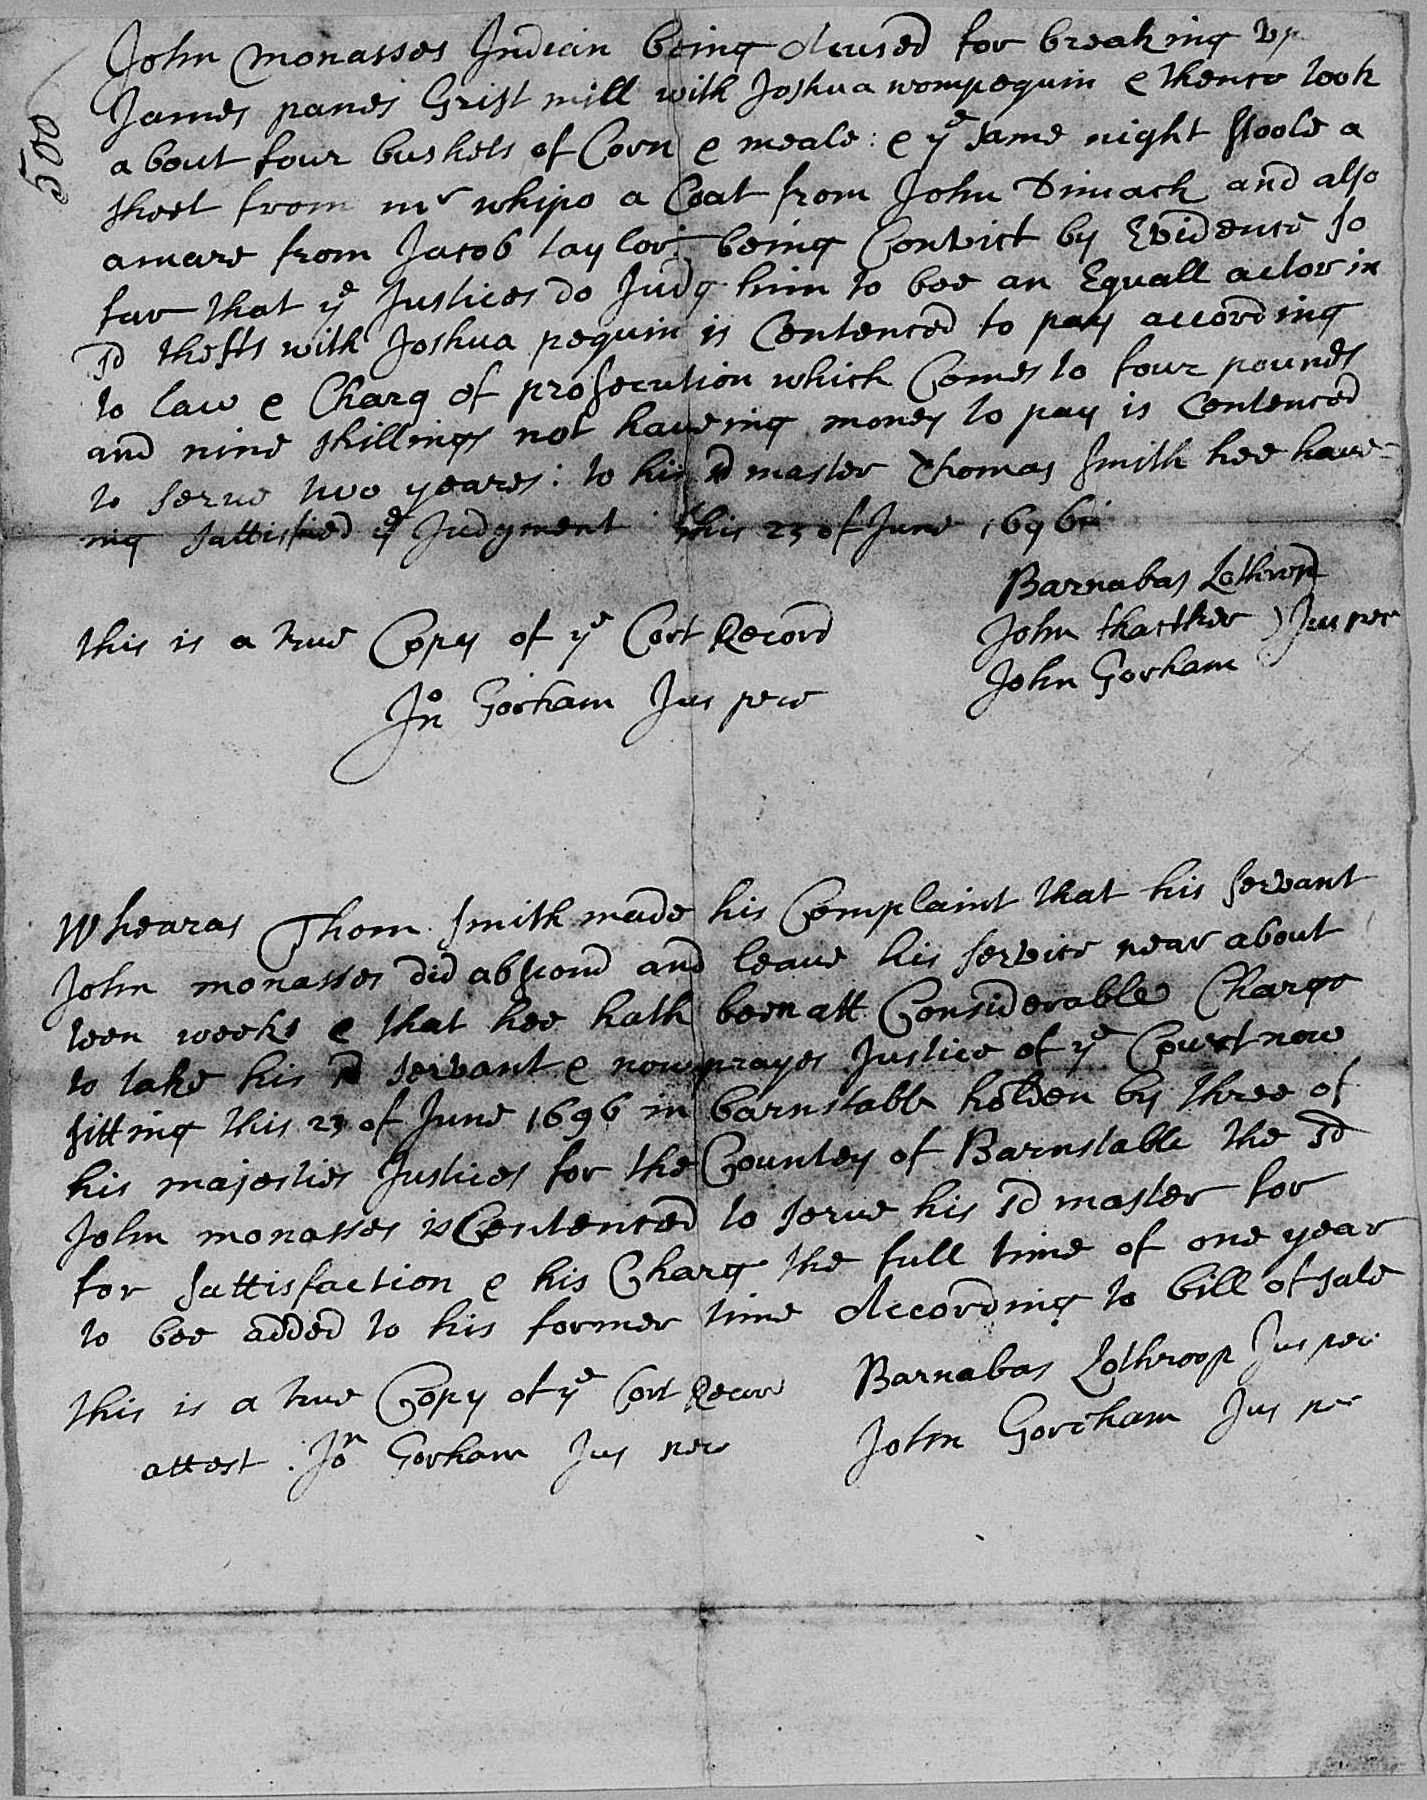 500
John Monasses Indian being Acused for breaking vp
James panes Grist mill with Joshua wompequin & thence took
about four bushels of Corn & meale: & ye same night stoole a
sheet from mr whipo a Coat from John Dimack and also
a mare from Jacob taylor being Convict by Evidence so
far that ye Justices do Judg him to bee an Equall actor in
sd thefts with Joshua pequin is Centenced to pay according
to law & Charg of prosecution which Comes to four pounds
and nine shillings not haveing money to pay is Centenced
to serve two yeares: to his sd master Thomas Smith hee have-
ing sattisfied ye Judgment this 23 of June 1696
Barnabas Lothrop
John thacther } Jus pece
John Gorham
this is a true Copy of ye Cort Record
Jno Gorham Jus pece
Whearas Thom. Smith made his Complaint that his servant
John monasses did abscond and leave his service near about
teen weeks & that hee hath been att Considerable Charge
to take his sd servant & now prayes Justice of ye Court now
sitting this 23 of June 1696 in barnstable holden by three of
his majesties Justices for the Countey of Barnstable the sd
John monasses is Centenced to serve his sd master for
for sattisfaction & his Charg the full time of one year
to bee added to his former time According to bill of sale
Barnabas Lothroop Jus pece
this is a true Copy of ye Cort Recor
John Gorcham Jus pece
attest. Jno Gorham Jus pece